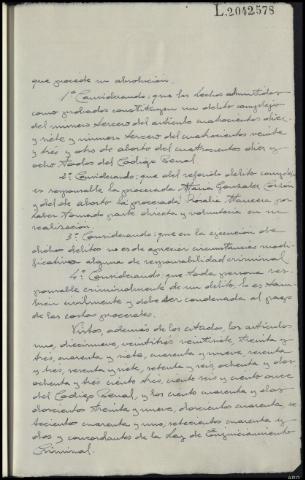 L.2042578
que procede su absolucion.
1º Considerando: que los hechos admitidos
como probados constituyen un delito complejo
del numero tercero del articulo cuatrocientos diez
y siete y numero tercero del cuatrocientos veinte
y tres y otro de aborto del cuatrocientos diez y
ocho todos del Codigo Penal
2º Considerando: que del referido delito complejo
es responsable la procesada Maria Gonzalez
y del de aborto la procesada Rosalia por
haber tomado parte directa y voluntaria en su
realizacion.
3º Considerando: que en la ejecucion de
dichos delitos no es de apreciar circunstancia modi-
ficativa alguna de responsabilidad criminal
4º Considerando que toda persona res-
ponsable criminalmente de un delito, lo es tam-
bien civilmente y debe ser condenada al pago
de las costas procesales.
Visto, ademas de los citados, los articulos
uno, diecinueve, veintitres veintisiete, treinta y
tres, cuarenta y siete, cuarenta y nueve, sesenta
y tres, setenta y seis, ochenta y dos
ochenta y tres ciento tres, ciento seis y ciento once
del Codigo Penal, y los ciento cuarenta y dos
doscientos treinta y nueve, doscientos cuarenta, se-
tecientos cuarenta y uno, setecientos cuarenta y
dos y concordantes de la Ley de Enjuiciamiento
Criminal.